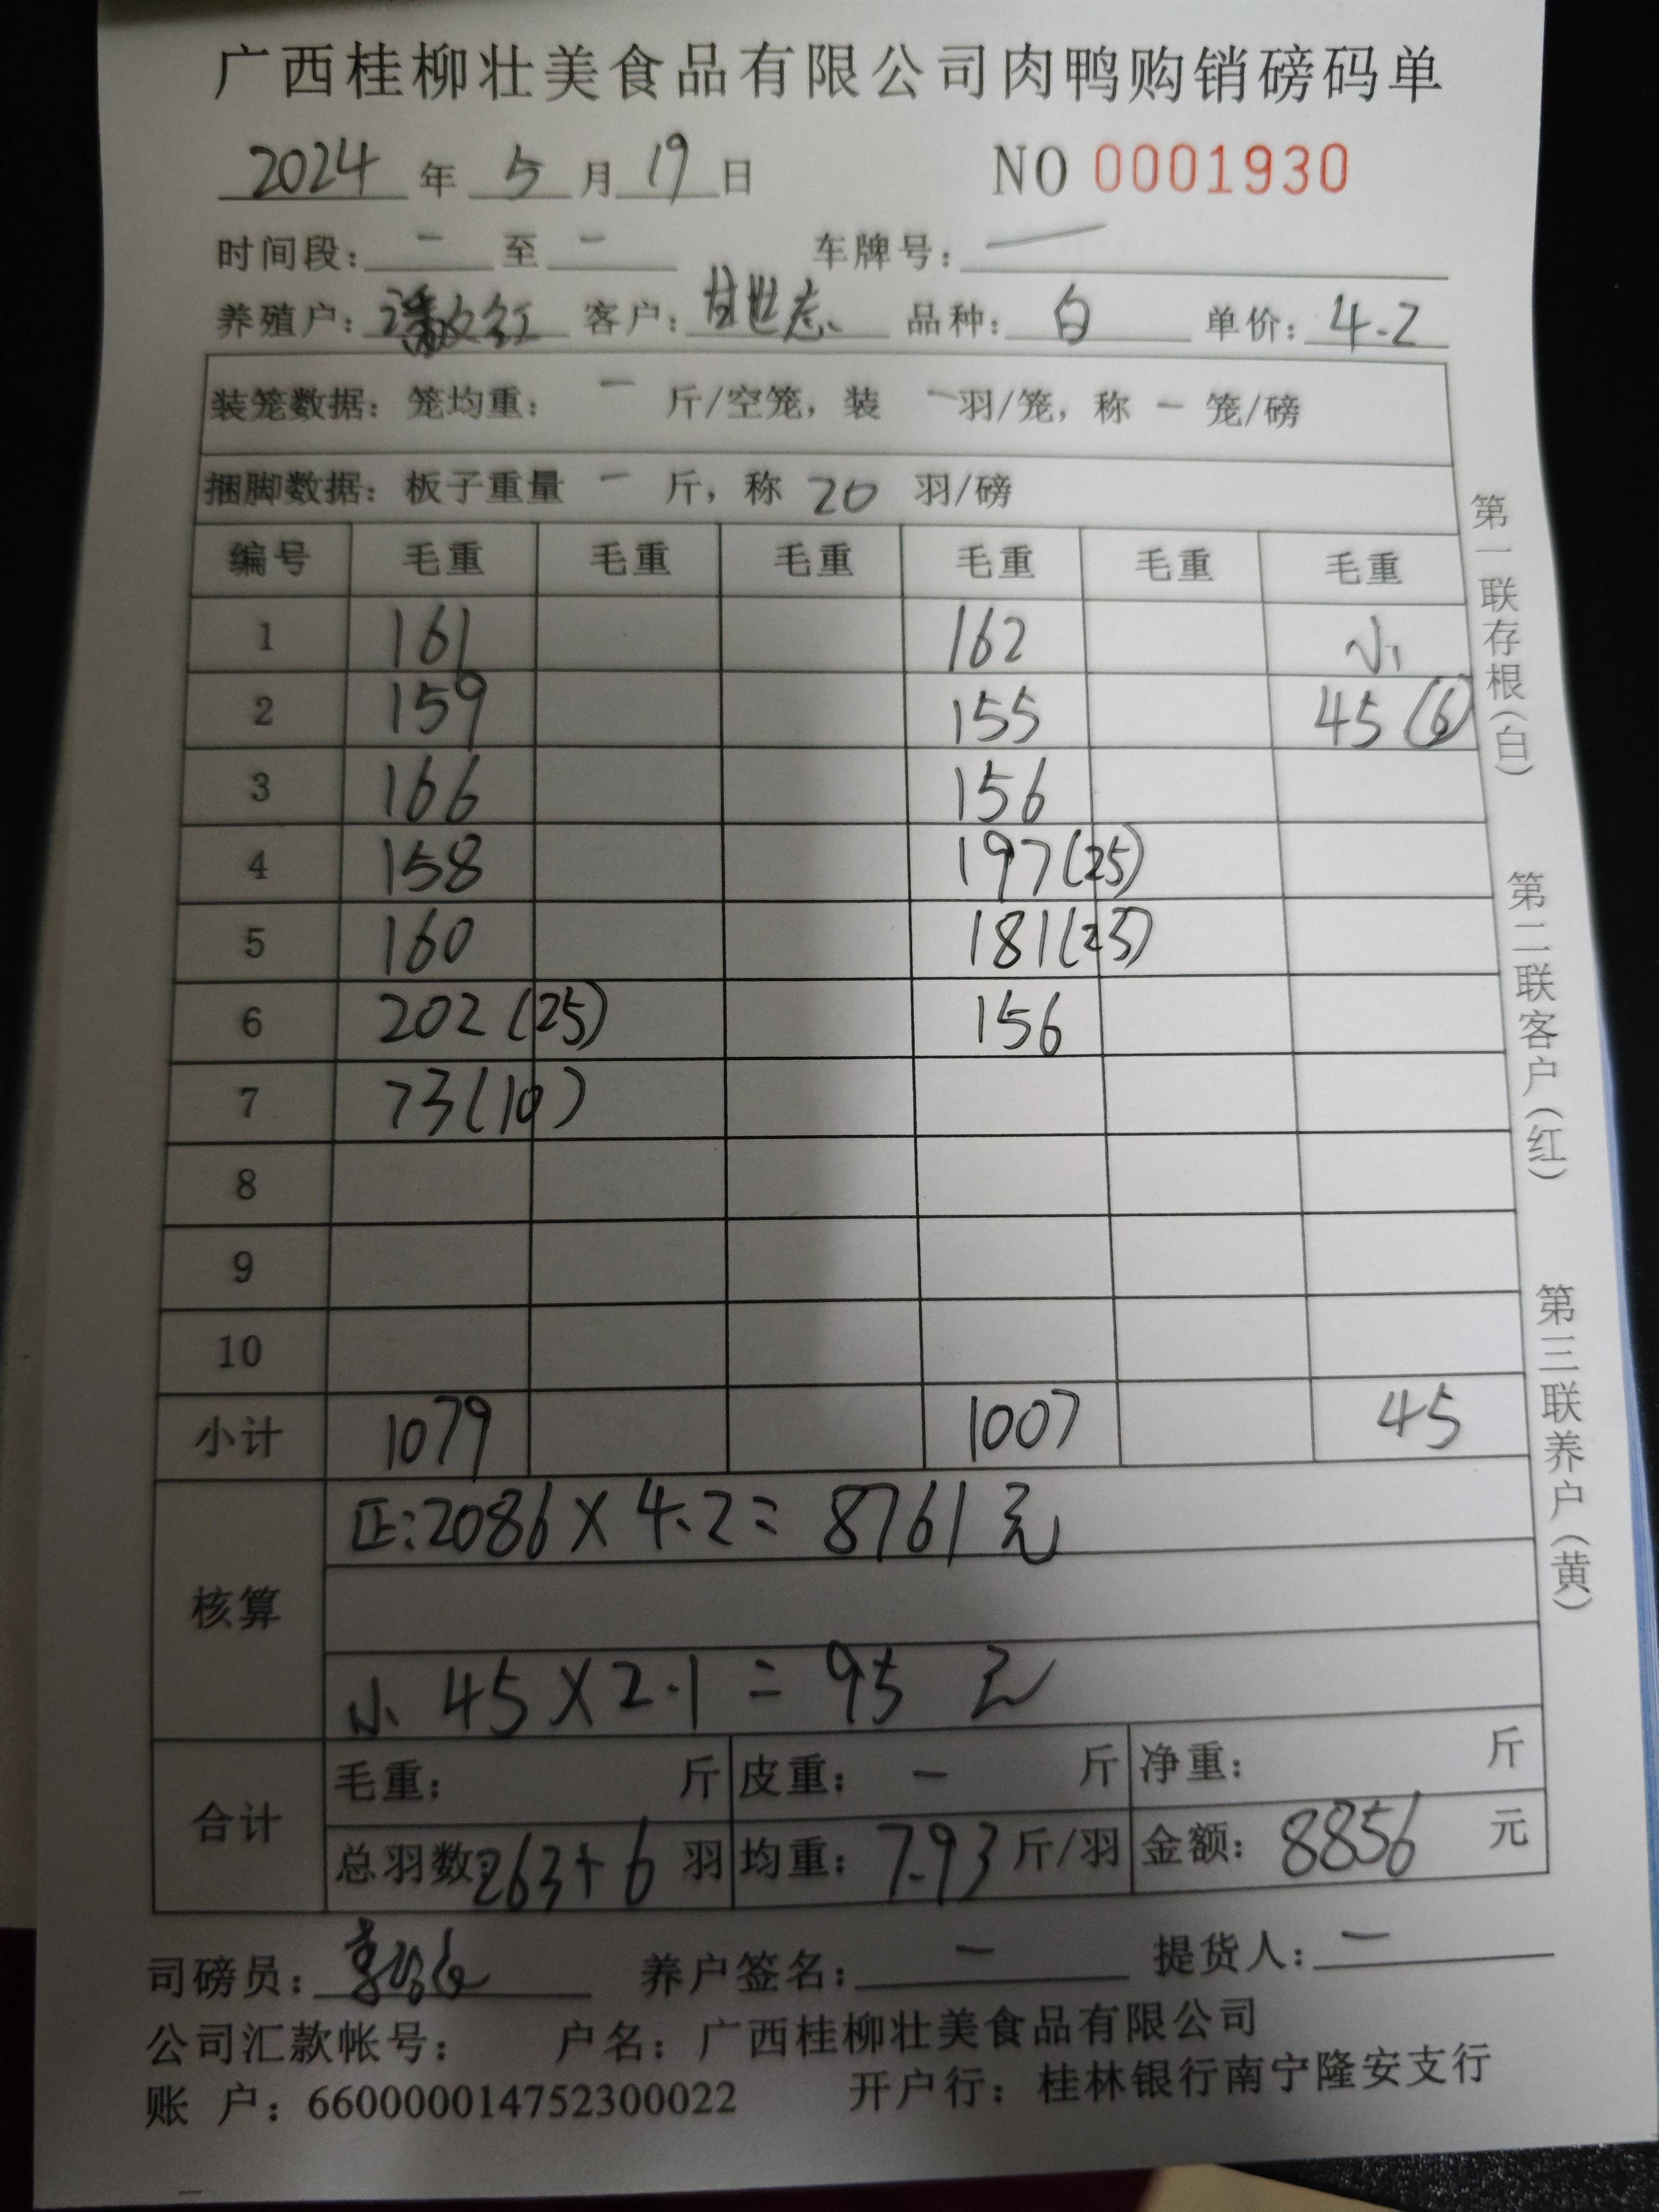 广西桂柳壮美食品有限公司肉鸭购销磅码单
2024 年 5 月 19 日 NO 0001930
时间段: - 至 - 车牌号: —
养殖户: 潘文红 客户: 甘世志 品种: 白 单价: 4.2
装笼数据: 笼均重: - 斤/空笼, 装 - 羽/笼, 称 - 笼/磅
捆脚数据: 板子重量 - 斤, 称 20 羽/磅
编号 毛重 毛重 毛重 毛重 毛重 毛重
1 161 162 小
2 159 155 45(6)
3 166 156
4 158 197(25)
5 160 181(23)
6 202(25) 156
7 73(10)
8
9
10
小计 1079 1007 45
正:2086×4.2= 8761元
核算
小 45×2.1=95 元
合计
毛重: 斤 皮重: - 斤 净重: 斤
总羽数:263+6 羽 均重: 7.93 斤/羽 金额: 8856 元
司磅员: 养户签名: - 提货人: -
公司汇款帐号: 户名: 广西桂柳壮美食品有限公司
账 户: 660000014752300022 开户行: 桂林银行南宁隆安支行
第一联存根(白) 第二联客户(红) 第三联养户(黄)